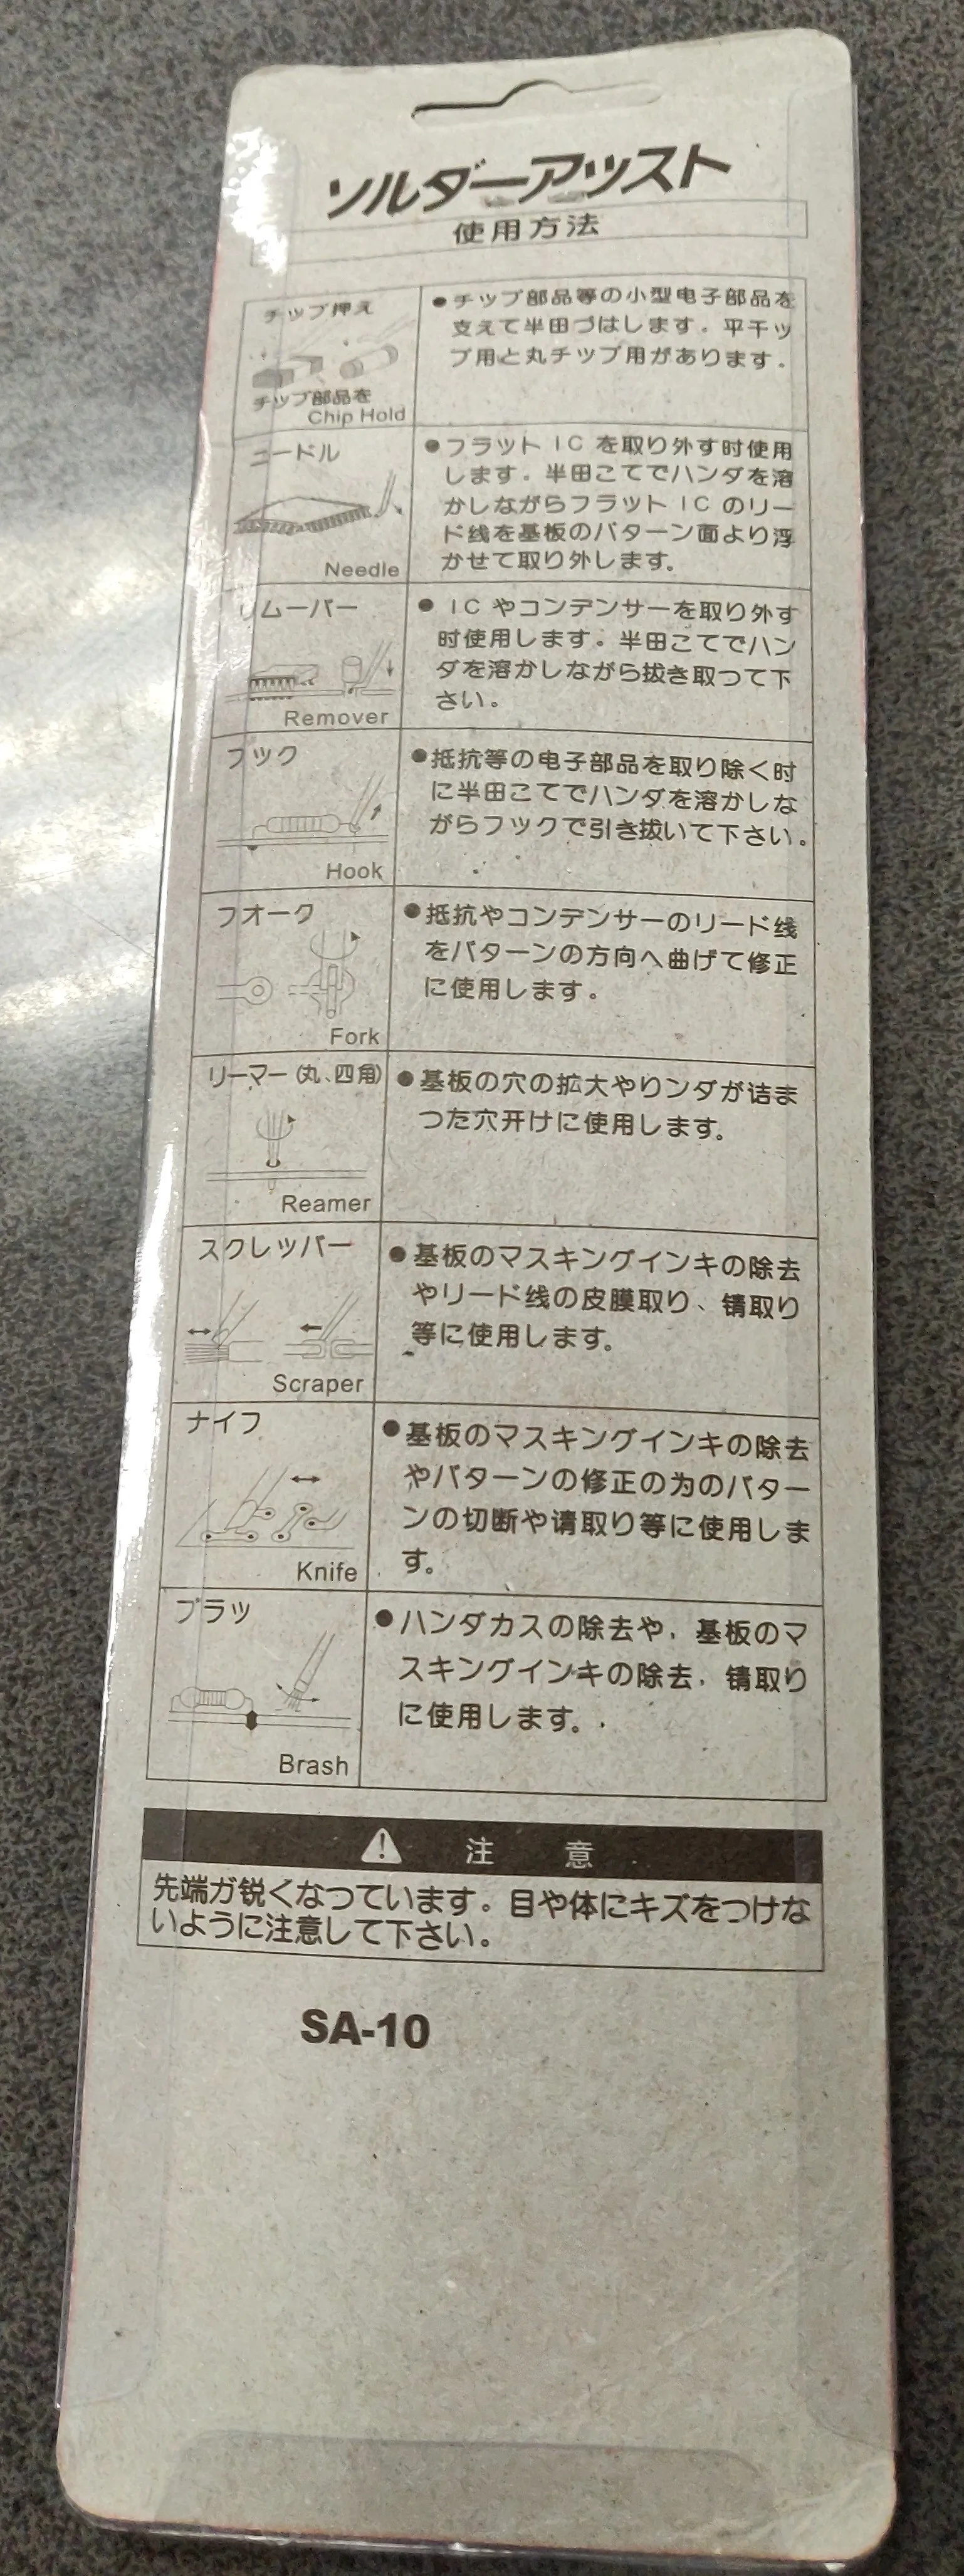 ソルダーアッスト
使用方法
チップ押え
チップ部品を
Chip Hold
●チップ部品等の小型电子部品を
支えて半田づはします。平干ッ
プ用と丸チップ用があります。
ニードル
Needle
●フラット IC を取り外す时使用
します。半田こてでハンダを溶
かしながらフラット IC のリー
ド线を基板のパターン面より浮
かせて取り外します。
リムーバー
Remover
● ICやコンデンサーを取り外す
时使用します。半田こてでハン
ダを溶かしながら抜き取つて下
さい。
フック
Hook
●抵抗等の电子部品を取り除く时
に半田こてでハンダを溶かしな
がらフックで引き抜いて下さい。
フオーク
Fork
●抵抗やコンデンサーのリード线
をパターンの方向へ曲げて修正
に使用します。
リーマー(丸、四角)
Reamer
●基板の穴の拡大やりンダが诘ま
つた穴开けに使用します。
スクレッパー
Scraper
●基板のマスキングインキの除去
やリード线の皮膜取り、锖取り
等に使用します。
ナイフ
Knife
●基板のマスキングインキの除去
やパターンの修正の为のパター
ンの切断や请取り等に使用しま
す。
ブラッ
Brash
●ハンダカスの除去や，基板のマ
スキングインキの除去，锖取り
に使用します。
注 意
先端が锐くなつています。目や体にキズをつけな
いように注意して下さい。
SA-10